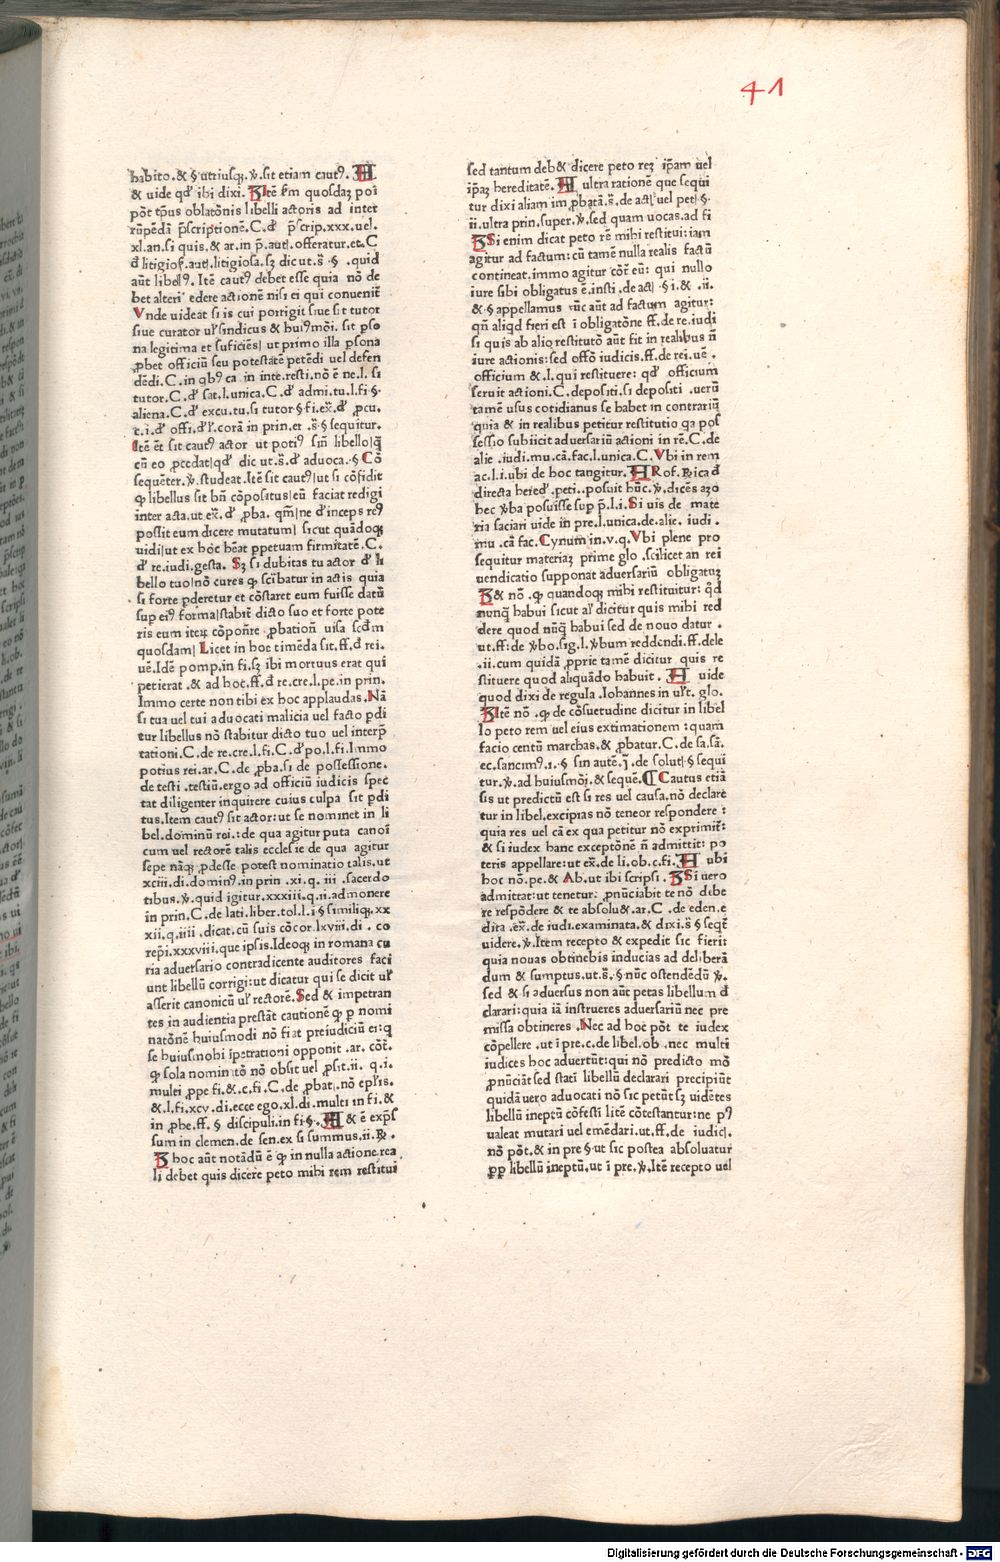 41
habito.& § utriusqꝫ.ꝟ.sit etiam cautꝰ. A
& uide qd' ibi dixi. Itē ẜm quosdaꝫ poī
pōt tp̄us oblatōnis libelli actoris ad inter
rūpēdā p̄scriptionē.C.d' p̄scrip.xxx.uel.
xl.an.si quis.& ar.in p̄.autl.offeratur.et.C
d̄ litigios.autl.litigiosa.sꝫ dic ut.s̄ .§ .quid
aūt libelꝰ. Itē cautꝰ debet esse quia nō de
bet alteri' edere actionē nisi ei qui conuenit̄
Vnde uideat si is cui porrigit siue sit tutor
siue curator ul' sindicus & huiꝰmōi. sit pso
na legitima et suficiēs| ut primo illa psona
ꝓbet officiū seu potestatē petēdi uel defen
dēdi.C.in qbꝰ ca in inte.resti.nō ē ne.l. si
tutor.C.d' sat.l.unica.C.d' admi.tu.l.fi §.
aliena.C.d' excu.tu.si tutor § fi.ex̄.d' ꝓcu.
c.i.d' offi.d'l'.corā in prin.et .s̄ § sequitur.
Itē ēt sit cautꝰ actor ut potiꝰ sin̄ libello|q̄
cū eo ꝓcedat|qd' dic ut.s̄.d' aduoca.§ Cō
sequēter.ꝟ.studeat.Itē sit cautꝰ|ut si cōfidit
ꝙ libellus sit bn̄ cōpositus|eū faciat redigi
inter acta.ut ex̄.d' ꝓba. qm̄|ne d'inceps reꝰ
possit eum dicere mutatum| sicut quādoqꝫ
uidi|ut ex hoc hēat ppetuam firmitatē.C.
d' re.iudi.gesta. Sꝫ si dubitas tu actor d' li
bello tuo|nō cures ꝙ scībatur in actis quia
si forte pderetur et cōstaret eum fuisse datū
sup eiꝰ forma|stabit̄ dicto suo et forte pote
ris eum iteꝝ cōpon̄re ꝓbation̄ uisa scd̄m
quosdam| Licet in hoc timēda sit.ff.d̄ rei.
uē.Idē pomp.in fi.sꝫ ibi mortuus erat qui
petierat .& ad hoc.ff.d̄ re.cre.l.pe.in prin.
Immo certe non tibi ex hoc applaudas.Nā
si tua uel tui aduocati malicia uel facto pdi
tur libellus nō stabitur dicto tuo uel interp̄
tationi.C.de re.cre.l.fi.C.d'po.l.fi.Immo
potius rei.ar.C.de ꝓba.si de possessione.
de testi .testiū.ergo ad officiū iudicis spec
tat diligenter inquirere cuius culpa sit pdi
tus.Item cautꝰ sit actor:ut se nominet in li
bel.dominū rei.:de qua agitur puta canoī
cum uel rectorē talis ecclesie de qua agitur
sepe nāqꝫ ꝓdesse potest nominatio talis.ut
xciii.di.dominꝰ.in prin .xi.q. iii .sacerdo
tibus.ꝟ.quid igitur.xxxiii.q.ii.admonere
in prin.C.de lati.liber.tol.l.i § similiqꝫ.xx
xii.q.iiii .dicat.cū suis cōcor.lxviii.di . co
rep̄i.xxxviii.que ipsis.Ideoqꝫ in romana cu
ria aduersario contradicente auditores faci
unt libellū corrigi:ut dicatur qui se dicit ul'
asserit canonicū ul' rectorē.Sed & impetran
tes in audientia prestāt cautionē ꝙ p nomi
natōnē huiusmodi nō fiat preiudiciū ei:q
se huiusmobi īpetrationi opponit .ar. cōt̄.
ꝙ sola nominatō nō obsit uel ꝓsit.ii. q.i.
multi ꝓpe fi.& c.fi.C.de ꝓbat.nō epl'is.
&.l.fi.xcv.di.ecce ego.xl.di.multi in fi.&
in ꝓhe.ff. § discipuli.in fi §. A & ē exp̄s
sum in clemen.de sen.ex si summus.ii.℞.
B hoc aūt notādū ē ꝙ in nulla actione rea
li debet quis dicere peto mihi rem restitui
sed tantum deb& dicere peto reꝫ ip̄am uel
ip̄aꝫ hereditatē. A ultra rationē que sequi
tur dixi aliam im ꝓbatā.s̄.de actl'uel petl §.
ii.ultra prin.super.ꝟ.sed quam uocas.ad fi
B Si enim dicat peto rē mihi restitui:iam
agitur ad factum:cū tamē nulla realis factū
contineat.immo agitur cōt̄ eū: qui nullo
iure sibi obligatus ē.insti.de actl §i.& .ii.
& § appellamus tūc aūt ad factum agitur:
qn̄ aliqd fieri est ī obligatōne ff.de re.iudi
si quis ab alio restitutō aūt fit in realibus n̄
iure actionis:sed offō iudicis.ff.de rei.uē.
officium & .l.qui restituere: qd' officium
seruit actioni.C.depositi.si depositi .uerū
tamē usus cotidianus se habet in contrariū
quia & in realibus petitur restitutio qa pos
sessio subiicit aduersariū actioni in rē.C.de
alie .iudi.mu.cā.fac.l.unica.C.Vbi in rem
ac.l.i.ubi de hoc tangitur. A Rof.℞ica d̄
directa hered'.peti..posuit hūc.ꝟ.dicēs aꝫo
hec ꝟba posuisse sup p̄.l.i.Si uis de mate
ria saciari uide in pre.l.unica.de.alie. iudi.
mu .cā fac. Cynum in.v.q.Vbi plene pro
sequitur materiaꝫ prime glo .scilicet an rei
uendicatio supponat aduersariū obligatuꝫ
B & nō .ꝙ quandoqꝫ mihi restituitur: qd̄
nunq̄ habui sicut al' dicitur quis mihi red
dere quod nūq̄ habui sed de nouo datur .
ut.ff:de ꝟbo.sig.l.ꝟbum reddendi.ff.dele
.ii.cum quidā ꝓprie tamē dicitur quis re
stituere quod aliquādo habuit . A uide
quod dixi de regula .Iohannes in ul't. glo.
B Itē nō .ꝙ de cōsuetudine dicitur in libel
lo peto rem uel eius extimationem :quam
facio centū marchas.& ꝓbatur.C.de sa.sā.
ec.sancimꝰ.1.§ sin autē.j̄.de solutl § sequi
tur.ꝟ.ad huiusmōi.& sequē.¶ Cautus etiā
sis ut predictū est si res uel causa.nō declare
tur in libel.excipias nō teneor respondere :
quia res uel cā ex qua petitur nō exprimit̄:
& si iudex hanc exceptōnē n̄ admittit: po
teris appellare:ut ex̄.de li.ob.c.fi. A ubi
hoc nō.pe.& Ab.ut ibi scripsi . B Si uero
admittat:ut tenetur: ꝓnūciabit te nō debe
re respōdere & te absolu&.ar.C .de eden.e
dita .ex̄.de iudi.examinata.& dixi.s̄ § seqt̄
uidere.ꝟ.Item recepto & expedit sic fierit
quia nouas obtinebis inducias ad deliberā
dum & sumptus.ut.s̄.§ nūc ostendēdū ꝟ.
sed & si aduersus non aūt petas libellum d̄
clarari:quia iā instrueres aduersariū nec pre
missa obtineres .Nec ad hoc pōt te iudex
cōpellere .ut ī pre.c.de libel.ob .nec multi
iudices hoc aduertūt:qui nō predicto mō
ꝓnūciāt sed statī libellū declarari precipiūt
quidā uero aduocati nō sic petūt sꝫ uidētes
libellū ineptū cōfesti litē cōtestantur:ne pꝰ
ualeat mutari uel emēdari.ut.ff.de iudicl.
nō pōt.& in pre §.ut sic postea absoluatur
pp libellū ineptū.ut ī pre.ꝟ.Itē recepto uel
Digitalisierung gefördert durch die Deutsche Forschungsgemeinschaft - DFG